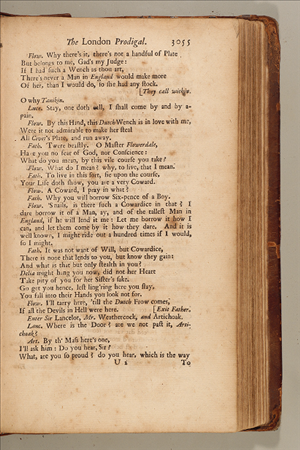 The London Prodigal. 3055
Flow. Why there's it, there's not a handful of Plate
But belongs to me, Gad's my Judge:
If I had such a Wench as thou art,
There's never a Man in England would make more
Of her, than I would do, so she had any stock.
[They call within.
O why Tanikin.
Luce. Stay, one doth call, I shall come by and by a-
gain.
Flow. By this Hand, this Dutch Wench is in love with me,
Were it not admirable to make her steal
All Civet's Plate, and run away.
Fath. 'Twere beastly. O Master Flowerdale,
Have you no fear of God, nor Conscience?
What do you mean, by this vile course you take?
Flow. What do I mean? why, to live, that I mean.
Fath. To live in this sort, fie upon the course,
Your Life doth show, you are a very Coward.
Flow. A Coward, I pray in what?
Fath. Why you will borrow Six-pence of a Boy.
Flow. 'Snails, is there such a Cowardice in that? I
dare borrow it of a Man, ay, and of the tallest Man in
England, if he will lend it me: Let me borrow it how I
can, and let them come by it how they dare. And it is
well known, I might ride out a hundred times if I would,
so I might.
Fath. It was not want of Will, but Cowardice,
There is none that lends to you, but know they gain:
And what is that but only stealth in you?
Delia might hang you now, did not her Heart
Take pity of you for her Sister's sake.
Go get you hence, lest ling'ring here you stay,
You fall into their Hands you look not for.
Flow. I'll tarry here, 'till the Dutch Frow comes,
If all the Devils in Hell were here. [Exit Father.
Enter Sir Lancelot, Mr. Weathercock, and Artichoak.
Lanc. Where is the Door? are we not past it, Arti-
choak?
Art. By th' Mass here's one,
I'll ask him: Do you hear, Sir?
What, are you so proud? do you hear, which is the way
U 2 To